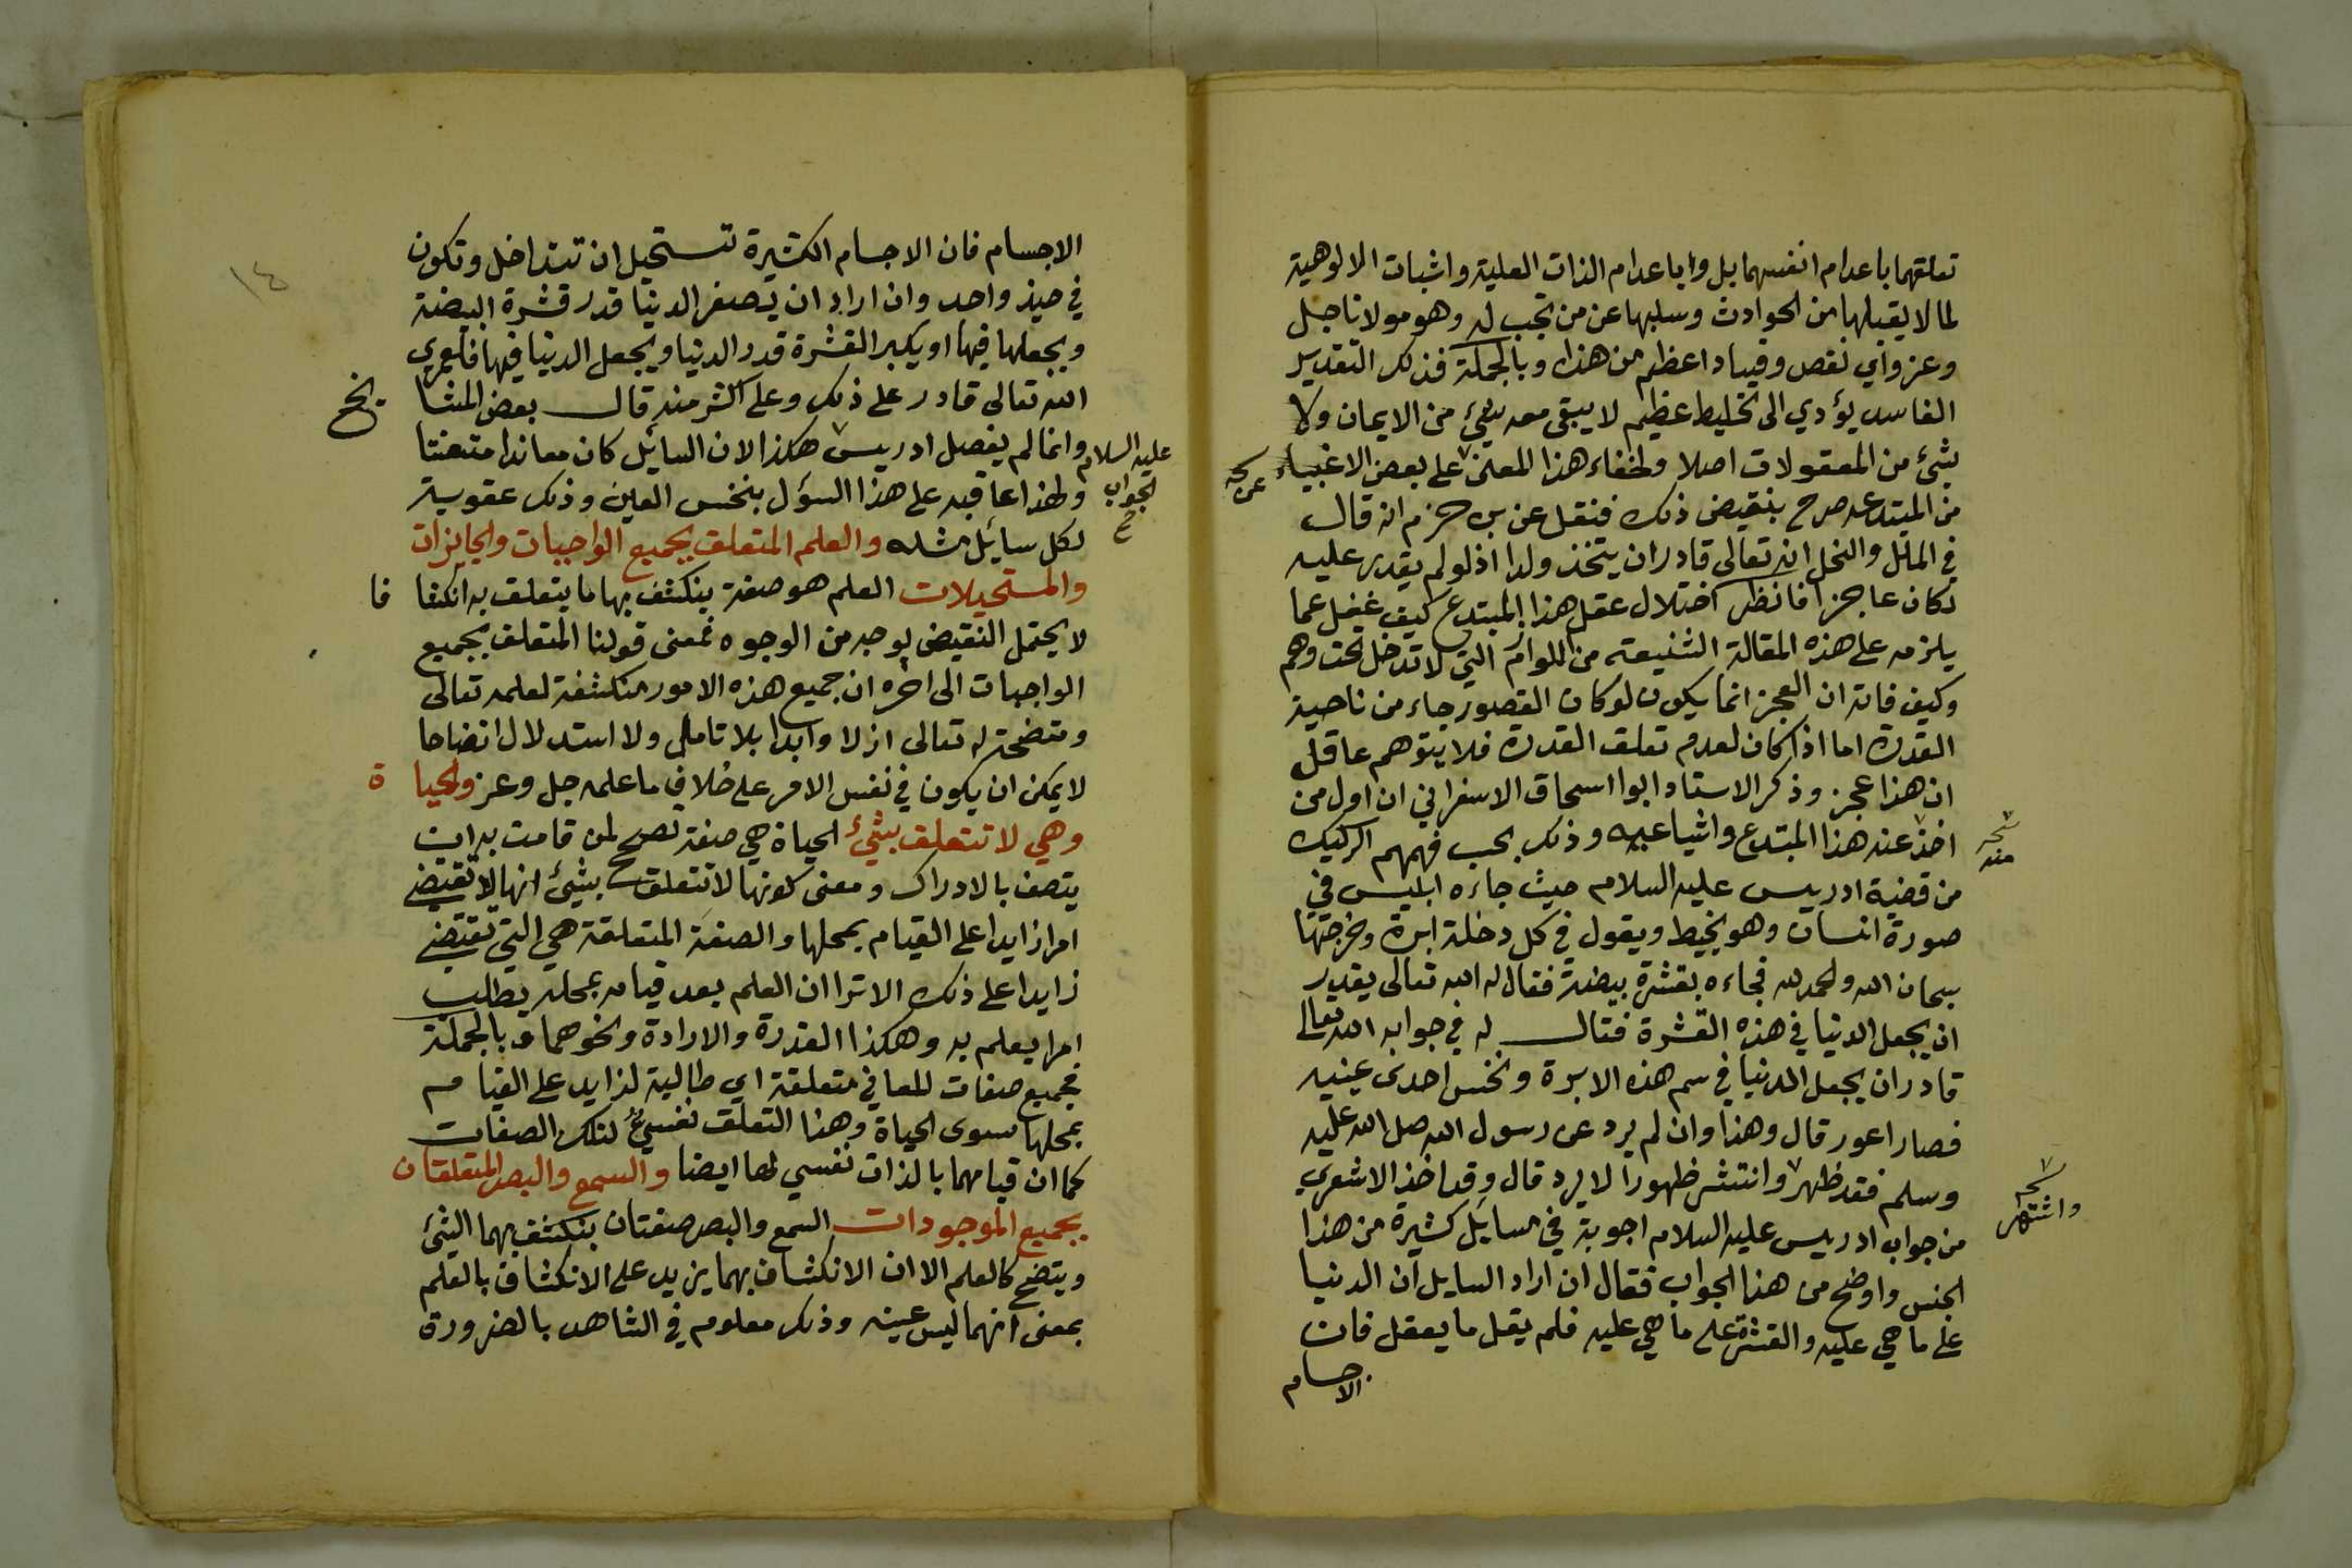 تعلقهما باعدام انفسهما بل وابا عدام الذات العلية واثبات الالوهية
لما لا يقبلها من الحوادث وسلبها عن من تجب له وهو مولانا جل
وعز واي نقص وفساد اعظم من هذا وبالجملة فذلك التقدير
الفاسد يؤدي الى تخليط عظيم لا يبقى معه شيئ من الايمان ولا
بشئ من المعقولات اصلا ولخفاء هذا المعنى على بعض الاغبياء
من المبتدعه صرح بنقيض ذلك فنقل عن بن حزم انه قال
في الملل والنحل انه تعالى قادر ان يتخذ ولدا اذ لو لم يقدر عليه
لكان عاجزا فانظر اختلال عقل هذا المبتدع كيف غفل عما
يلزمه على هذه المقالة الشنيعة من اللوازم التي لا تدخل تحت وهم
وكيف فاته ان العجز انما يكون لو كان القصور جاء من ناحية
القدرة اما اذا كان لعدم تعلق القدرة فلا يتوهم عاقل
ان هذا عجز وذكر الاستاد ابوا اسحاق الاسفراني ان اول من
اخذ عنه هذا المبتدع واشياعه وذلك بحسب فهمهم الركيك
منه
من قضية ادريس عليه السلام حيث جاءه ابليس في
صورة انسان وهو يخيط ويقول في كل دخلة ابرة وخرجتها
سبحان الله والحمد لله فجاءه بقشرة بيضة فقال له الله تعالى يقدر
ان يجعل الدنيا في هذه القشرة فقال له في جوابه الله تعالى
قادر ان يجعل الدنيا في سم هذه الابرة ونخس احدى عينيه
فصار اعور قال وهذا وان لم يرد عن رسول الله صل الله عليه
وسلم فقد ظهر وانتشر ظهورا لا يرد قال وقد اخذ الاشعري
واشتهر
من جواب ادريس عليه السلام اجوبة في مسايل كثيرة من هذا
الجنس واوضح من هذا الجواب فقال ان اراد السايل ان الدنيا
على ما هي عليه والقشرة على ما هي عليه فلم يقل ما يعقل فان
الاجسام
١٤
الاجسام فان الاجسام الكثيرة تستحيل ان تتداخل وتكون
في حيز واحد وان اراد ان يصغر الدنيا قدر قشرة البيضة
ويجعلها فيها او يكبر القشرة قدر الدنيا ويجعل الدنيا فيها فلعمري
الله تعالى قادر على ذلك وعلى اكثر منه قال بعض المشا يخ
وانما لم يفصل ادريس هكذا لان السايل كان معاندا متعنتا
عليه السلام
الجواب
ولهذا عاقبه على هذا السؤل بنخس العين وذلك عقوبة
لكل سايل مثله والعلم المتعلق بجميع الواجبات والجايزات
والمستحيلات العلم هو صفة ينكشف بها ما يتعلق به انكشا فا
لا يحتمل النقيض بوجه من الوجوه فمعنى قولنا المتعلق بجميع
الواجبات الى اخره ان جميع هذه الامور منكشفة لعلمه تعالى
ومتضحة له تعالى ازلا وابدا بلا تامل ولا استدلال اتضاحا
لا يمكن ان يكون في نفس الامر على خلاف ما علمه جل وعز والحيا ة
وهي لا تتعلق بشيئ الحياة هي صفة تصحح لمن قامت به ان
يتصف بالادراك ومعنى كونها لا تتعلق بشيئ انها لا تقتضي
امرا زايدا على القيام بمحلها والصفة المتعلقة هي التي تقتضي
زايدا على ذلك الا ترا ان العلم بعد قيامه بمحله يطلب
امرا يعلم به وهكذا القدرة والارادة ونحوهما وبالجملة
فجميع صفات المعاني متعلقة اي طالبة لزايد على القيام
بمحلها سوى الحياة وهذا التعلق نفسيٌ لتلك الصفات
كما ان قيامهما بالذات نفسي لها ايضا والسمع والبصر المتعلقان
بجميع الموجودات السمع والبصر صفتان ينكشف بهما الشئ
ويتضح كالعلم الا ان الانكشاف بهما يزيد على الانكشاف بالعلم
بمعنى انهما ليس عينه وذلك معلوم في الشاهد بالضرورة